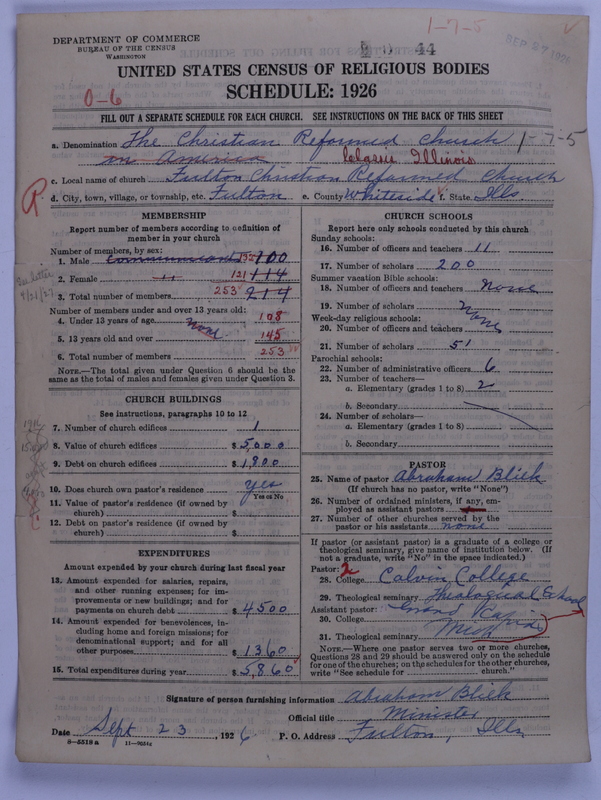 1-7-5
DEPARTMENT OF COMMERCE
BUREAU OF THE CENSUS
WASHINGTON
44
SEP 27 1926
UNITED STATES CENSUS OF RELIGIOUS BODIES
SCHEDULE: 1926
0-6
FILL OUT A SEPARATE SCHEDULE FOR EACH CHURCH. SEE INSTRUCTIONS ON THE BACK OF THIS SHEET
a. Denomination The Christian Reformed Church 1-7-5
in America Classis Illinois
c. Local name of church Fulton Christian Reformed Church
R
d. City, town, village, or township, etc. Fulton e. County Whiteside f. State Ills.
MEMBERSHIP
Report number of members according to definition of
member in your church
Number of members, by sex:
1. Male Communicant 132 100
2. Female " 121 114
3. Total number of members 253 214
See letter
9/21/27
Number of members under and over 13 years old:
4. Under 13 years of age none 108
5. 13 years old and over 145
6. Total number of members 253
NOTE.—The total given under Question 6 should be the
same as the total of males and females given under Question 3.
CHURCH BUILDINGS
See instructions, paragraphs 10 to 12
7. Number of church edifices 1
8. Value of church edifices $ 5,000
9. Debt on church edifices $ 1,800
10. Does church own pastor's residence yes
Yes or No
11. Value of pastor's residence (if owned by
church) $
12. Debt on pastor's residence (if owned by
church) $
EXPENDITURES
Amount expended by your church during last fiscal year
13. Amount expended for salaries, repairs,
and other running expenses; for im-
provements or new buildings; and for
payments on church debt $ 4500
14. Amount expended for benevolences, in-
cluding home and foreign missions; for
denominational support; and for all
other purposes $ 1360
15. Total expenditures during year $ 5,860
CHURCH SCHOOLS
Report here only schools conducted by this church
Sunday schools:
16. Number of officers and teachers 11
17. Number of scholars 200
Summer vacation Bible schools:
18. Number of officers and teachers None
19. Number of scholars
Week-day religious schools:
20. Number of officers and teachers None
21. Number of scholars 51
Parochial schools:
22. Number of administrative officers 6
23. Number of teachers—
a. Elementary (grades 1 to 8) 2
b. Secondary
24. Number of scholars—
a. Elementary (grades 1 to 8)
b. Secondary
PASTOR
25. Name of pastor Abraham Bliek
(If church has no pastor, write "None")
26. Number of ordained ministers, if any, em-
ployed as assistant pastors
27. Number of other churches served by the
pastor or his assistants none
If pastor (or assistant pastor) is a graduate of a college or
theological seminary, give name of institution below. (If
not a graduate, write "No" in the space indicated.)
Pastor: 2
28. College Calvin College
29. Theological seminary Theological School
Assistant pastor: Grand Rapids
30. College Mich
31. Theological seminary
NOTE.—Where one pastor serves two or more churches,
Questions 28 and 29 should be answered only on the schedule
for one of the churches; on the schedules for the other churches,
write "See schedule for church."
Signature of person furnishing information Abraham Bliek
Official title Minister
Date Sept 23, 1926 P. O. Address Fulton, Ills
8—5518 a 11—9051c